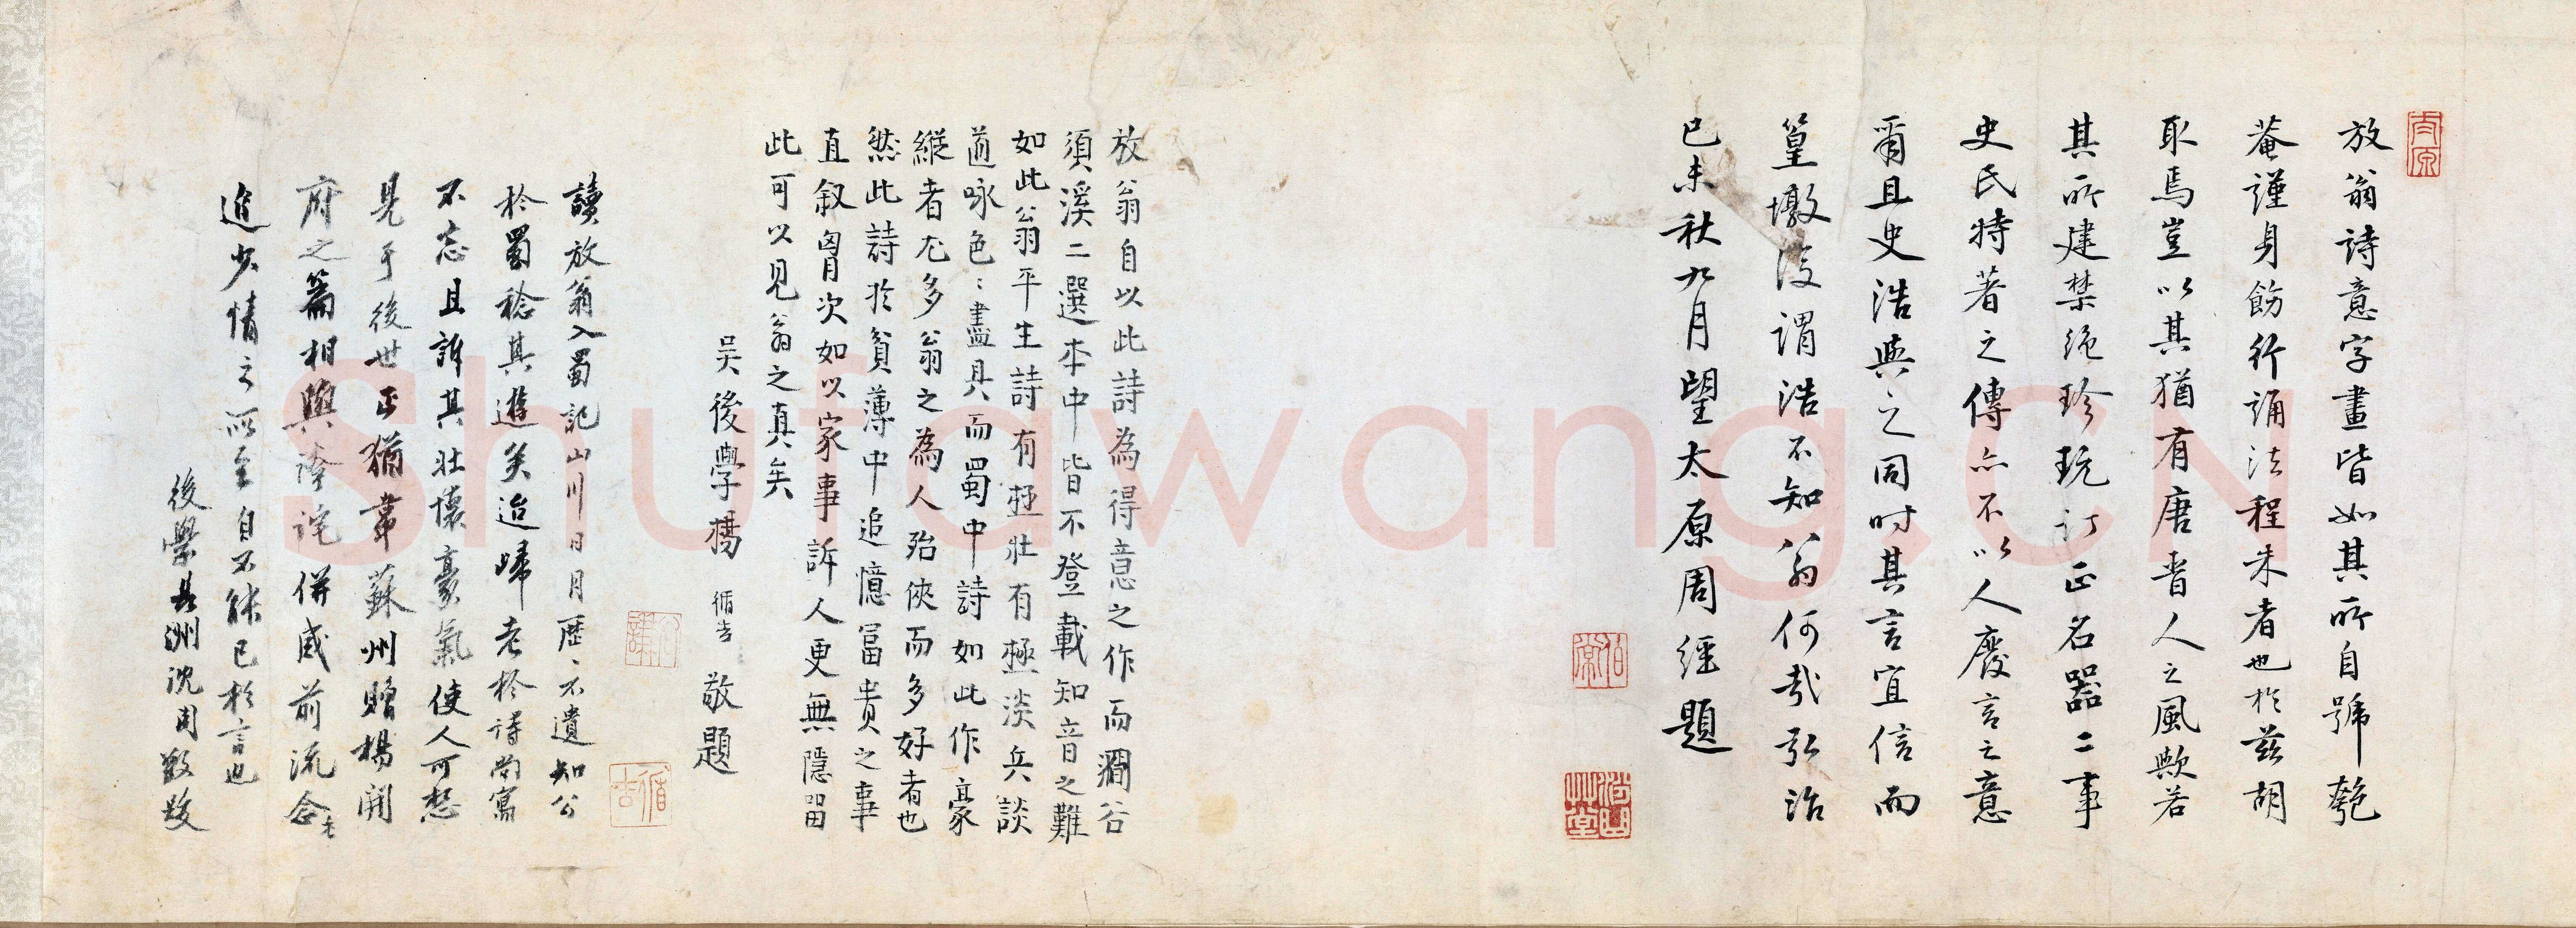 放翁詩意字畫皆如其所自號匏
菴謹身飭行誦法程朱者也於茲胡
取焉豈以其猶有唐晉人之風歟若
其所建禁絶珍玩訂正名器二事
史氏特著之傳亦不以人廢言之意
爾且史浩與之同時其言宜信而
篁墩沒謂浩不知翁何哉弘治
己未秋九月望太原周經題
放翁自以此詩為得意之作而澗谷
須溪二選本中皆不登載知音之難
如此翁平生詩有極壯有極淡兵談
道咏色〻盡具而蜀中詩如此作豪
縱者尤多翁之為人殆俠而多好者也
然此詩於貧薄中追憶富貴之事
直叙胷次如以家事訴人更無隱留
此可以見翁之真矣
吴後學楊循吉敬題
讀放翁入蜀記山川日月歷〻不遺知公
於蜀稔其遊矣迨歸老於詩尚寫
不忘且訴其壯懷豪氣使人可想
見于後世正猶韋蘇州贈楊開
府之篇相與誇詫併感前流念
進少情之所至自不能已於言也
後學長洲沈周敬跋
太原
伯常
循吉
Shufawang.CN